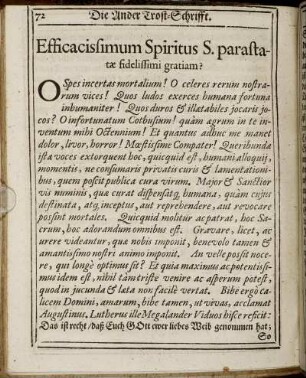 72 Die Ander Trost-Schrifft.
Efficacissimum Spiritus S. parasta-
tæ fidelissimi gratiam?
O Spes incertas mortalium! O celeres rerum nostra-
rum vices! Quos ludos exerces humana fortuna
inhumaniter! Quos duros & illætabiles jocaris jo-
cos? O infortunatum Cothusium! quàm agrum in te in-
ventum mihi Octennium! Et quantus adhuc me manet
dolor, livor, horror! Mœstissime Compater! Queribunda
ista voces extorquent hoc, quicquid est, humani alloquij,
momentis, ne consumaris privatis curis & lamentationi-
bus, quem poscit publica cura virum. Major & Sanctior
vis numinis, quæ curat dispensatq; humana, quàm cujus
destinata, atq; inceptus, aut reprehendere, aut revocare
possint mortales. Quicquid molitur ac patrat, hoc Sa-
crum, hoc adorandum omnibus est. Gravare, licet, ac
urere videantur, quæ nobis imponit, benevolo tamen &
amantissimo nostri animo imponit. An velle possit noce-
re, qui longè optimus sit? Et quia maximus ac potentissi-
mus idem est, nihil tàm triste venire ac asperum potest,
quod in jucunda & læta non facilè vertat. Bibe ergò ca-
licem Domini, amarum, bibe tamen, ut vivas, acclamat
Augustinus. Lutherus ille Megalander Viduos hisce reficit:
Das ist recht / daß Euch GOtt ewer liebes Weib genommen hat;
So